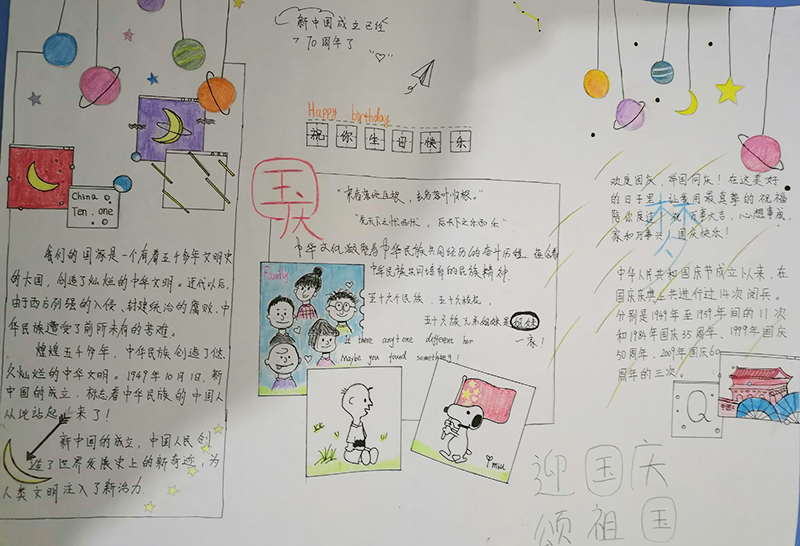 新中国成立已经
70周年了
Happy birthday
祝你生日快乐
国庆
China
Ten. one
我们的国家是一个有着五千多年文明史
的大国，创造了灿烂的中华文明。近代以后，
由于西方列强的入侵、封建统治的腐败，中
华民族遭受了前所未有的苦难。
辉煌五千多年，中华民族创造了悠
久灿烂的中华文明。1949年10月1日，新
中国的成立，标志着中华民族的中国人
从此站起来了！
新中国的成立，中国人民创
造了世界发展史上的新奇迹，为
人类文明注入了新活力.
"先天下之忧而忧， 后天下之乐而乐"
中华文化凝聚着中华民族共同经历的奋斗历程，
中华民族共同培育的民族精神
Family
五十六个民族，五十六枝花，
五十六族兄弟姐妹是
一家！
Is there anytone different her
Maybe you found something!
欢度国庆，举国同庆！在这美好
的日子里，让我用最真挚的祝福
陪你度过，祝万事大吉，心想事成，
家和万事兴！国庆快乐！
梦
中华人民共和国国庆节成立以来，在
国庆庆典上共进行过14次阅兵。
分别是1949年至1959年间的11次
和1984年国庆35周年、1999年国庆
50周年、2009年国庆60
周年的三次。
Q
迎国庆
颂祖国